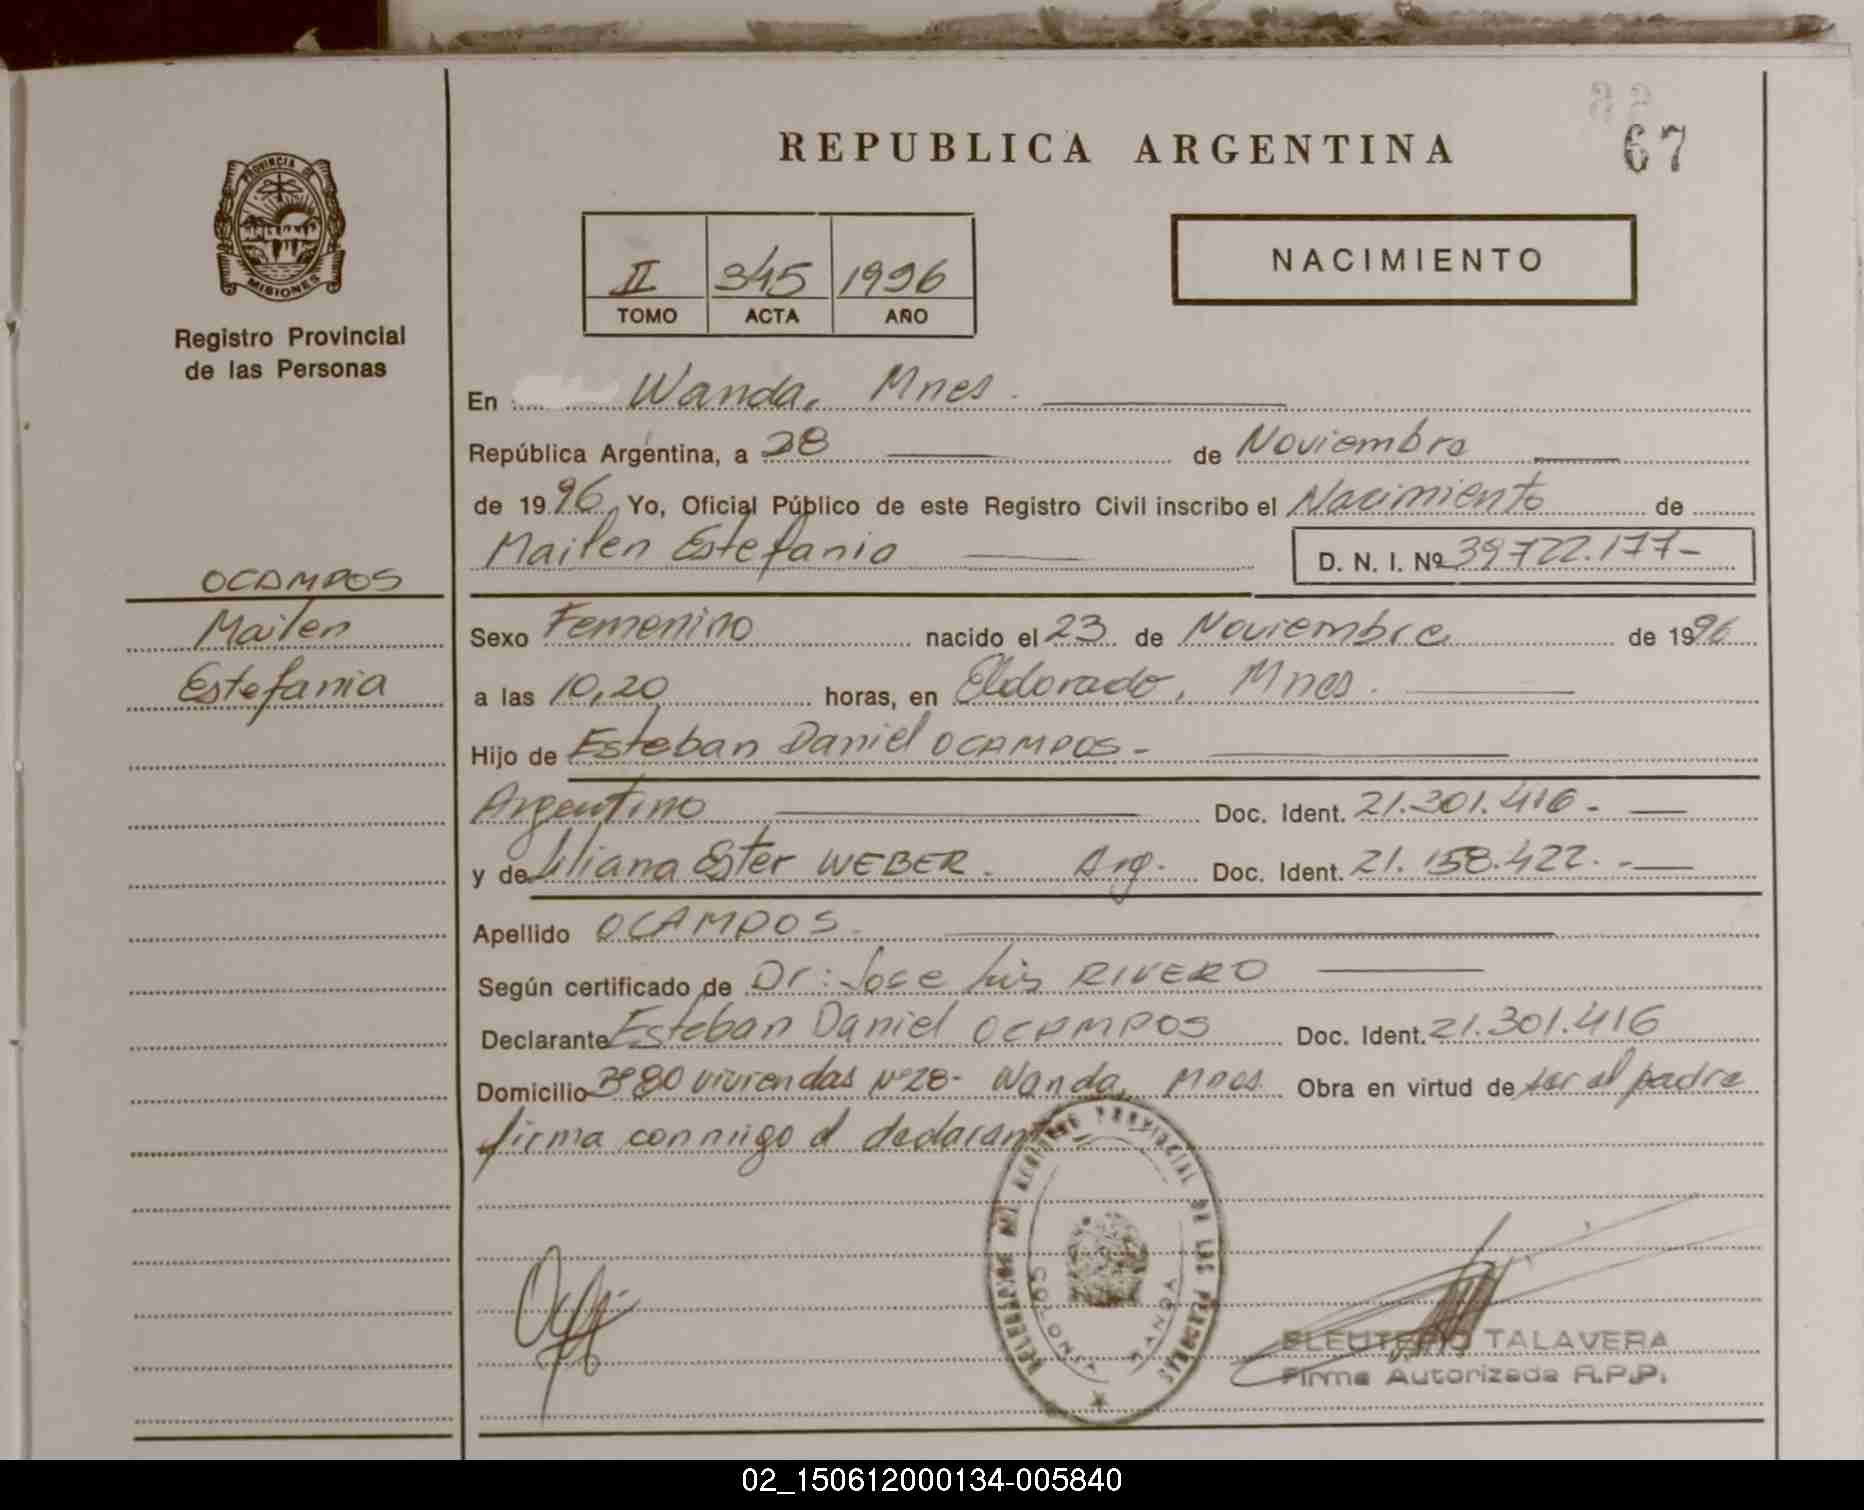 REPUBLICA ARGENTINA
67
PROVINCIA DE
MISIONES
Registro Provincial
de las Personas
II 345 1996
TOMO ACTA AÑO
NACIMIENTO
En Wanda, Mnes.
República Argentina, a 28 de Noviembre
de 1996, Yo, Oficial Público de este Registro Civil inscribo el Nacimiento de
Mailen Estefania D. N. I. Nº 39722.177-
OCAMPOS
Mailen
Estefania
Sexo Femenino nacido el 23 de Noviembre de 1996
a las 10,20 horas, en Eldorado, Mnes.
Hijo de Esteban Daniel OCAMPOS-
Argentino Doc. Ident. 21.301.416-
y de Liliana Ester WEBER. Arg. Doc. Ident. 21.158.422.-
Apellido OCAMPOS.
Según certificado de Dr: Jose Luis RIVERO
Declarante Esteban Daniel OCAMPOS Doc. Ident. 21.301.416
Domicilio 80 viviendas Nº28- Wanda, Mnes. Obra en virtud de ser el padre
firma conmigo el declarante
PROVINCIAL DE LAS PERSONAS
COLONIA WANDA
ELEUTERIO TALAVERA
Firma Autorizada R.P.P.
02_150612000134-005840